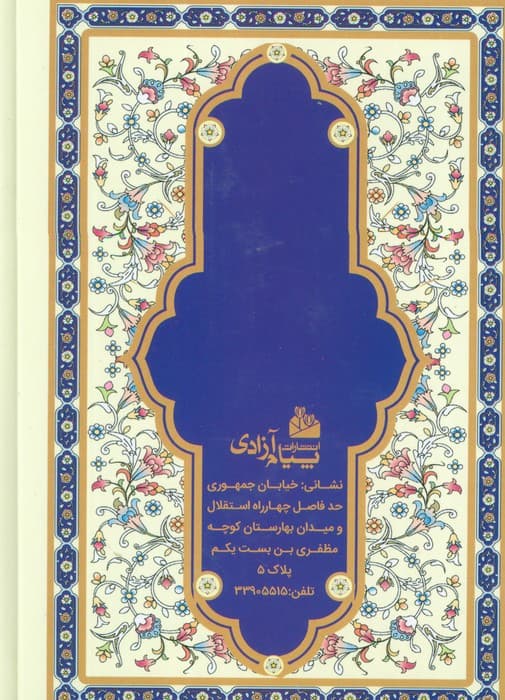 انتشارات
پیام آزادی
نشانی: خیابان جمهوری
حد فاصل چهارراه استقلال
و میدان بهارستان کوچه
مظفری بن بست یکم
پلاک ۵
تلفن:۳۳۹۰۵۵۱۵